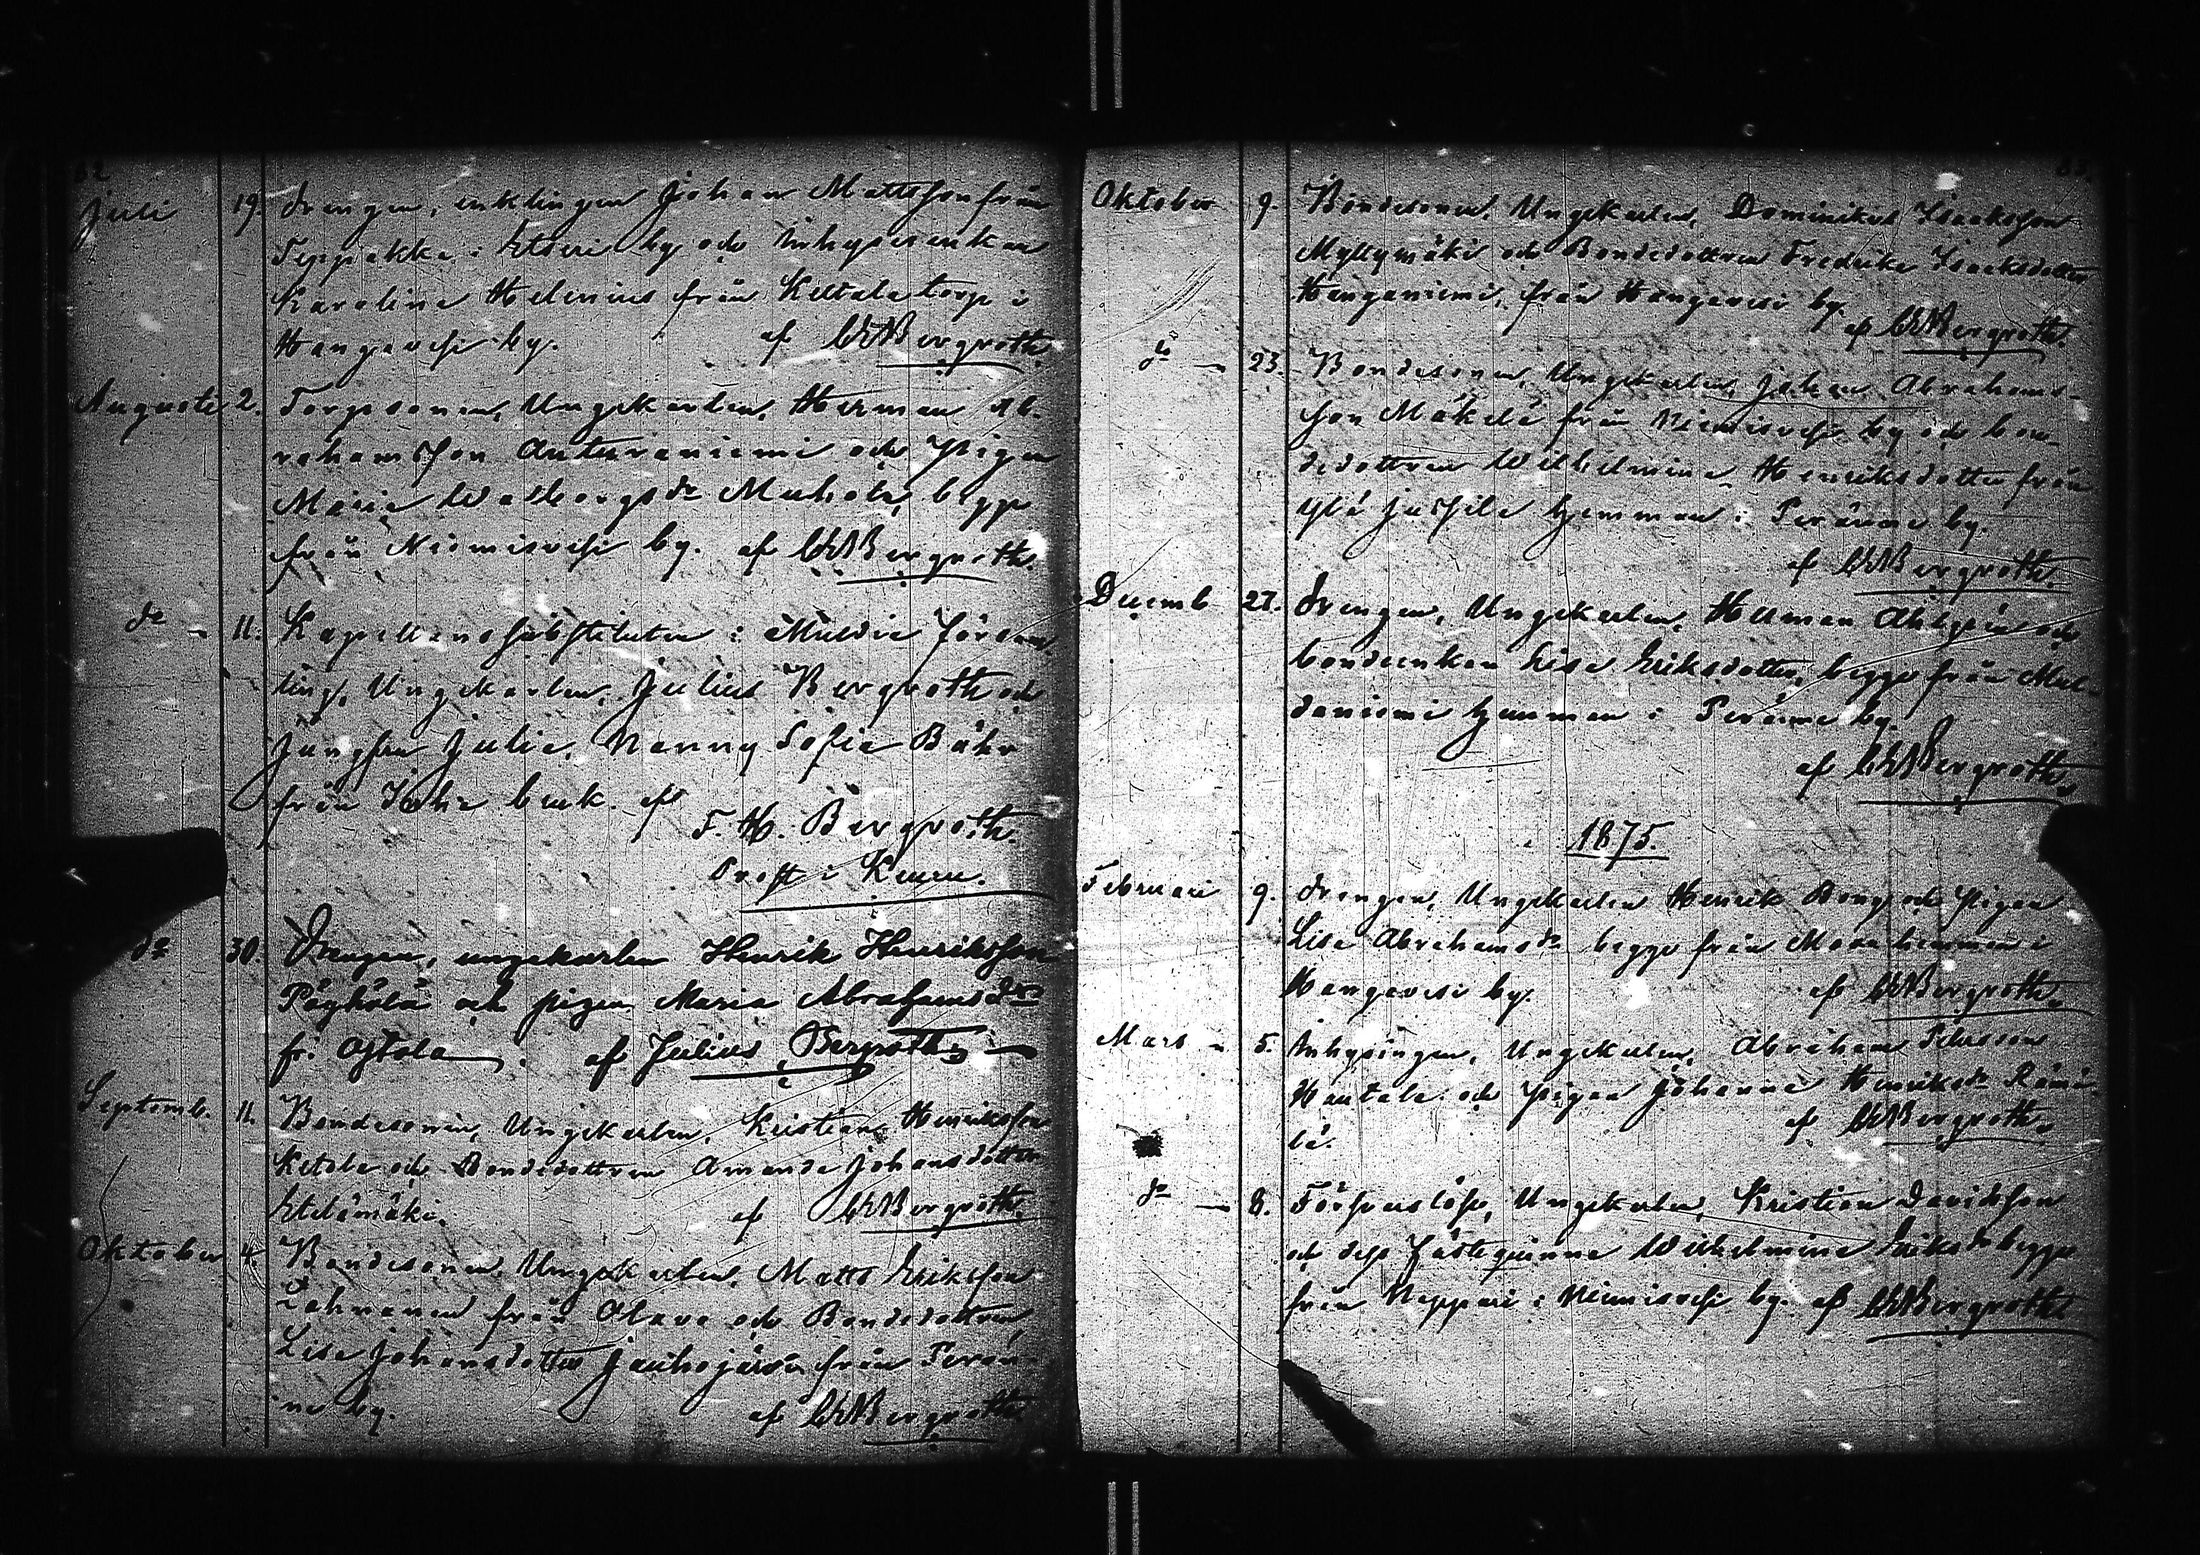 82
Juli 19. Drengen, enklingen Johan Mattsson från
i Etseri by och Inhyses enkan
Karoline Helenius från Ketala torp i
Hangavesi by. af CEBergroth.
Augusti 2. Torpsonen, Ungkarlen, Herman Ab-
rahamsson Auteraniemi och Pigan
Maria Walborgsdr Muhola, begge
från Niemisvesi by. af CEBergroth.
dº 11. Kapellanssubstituten i Multia försam
ling, Ungkarlen, Julius Bergroth och
Jungfrun Julia, Nanny Sofia Bähr
från Inha bruk. af
F. H. Bergroth.
Prost i Keuru.
dº 30. Drengen, ungkarlen Henrik Henriksson
och pigan Maria Abrahamsdr
fr. af Julius Bergroth
Septemb. 11. Bondesonen, Ungkarlen, Kristian Henriksson
Ketola och Bondedottren Amanda Johansdotter
Etelämäki. af CEBergroth.
Oktober 4. Bondesonen, Ungkarlen, Matts Eriksson
från och Bondedottren
Lisa Johansdotter Jauhojärvi från Perän-
ne by. af CEBergroth.
83.
Oktober 9. Bondesonen, Ungkarlen, Dominikus Isaksson
Myllymäki och Bondedottren Fredrika Isaksdotter
Hanganiemi, från Hangavesi by.
af CEBergroth.
dº 23. Bondesonen, Ungkarlen, Johan Abrahams-
son Mäkelä från Niemisvesi by och bon-
dedottren Wilhelmina Henriksdotter från
hemman i Peränne by.
af CEBergroth.
Decemb 27. Drengen, Ungkarlen, Herman Ahlgrén och
bondeenkan Lisa Eriksdotter, begge från
hemman i Peränne by
af CEBergroth.
1875.
Februari 9. Drengen, Ungkarlen Henrik och Pigan
Lisa Abrahamsdr begge från hemman i
Hangavesi by. af CEBergroth.
Mars 5. Inhysingen, Ungkarlen, Abraham Petersson
Hautala och Pigan Johanna Henriksdr Rämä-
lä. af CEBergroth.
dº 8. Ungkarlen, Kristian Davidsson
och dess Fästeqvinna Wilhelmina Eriksdr begge
från Neppari i Niemisvesi by. af CEBergroth